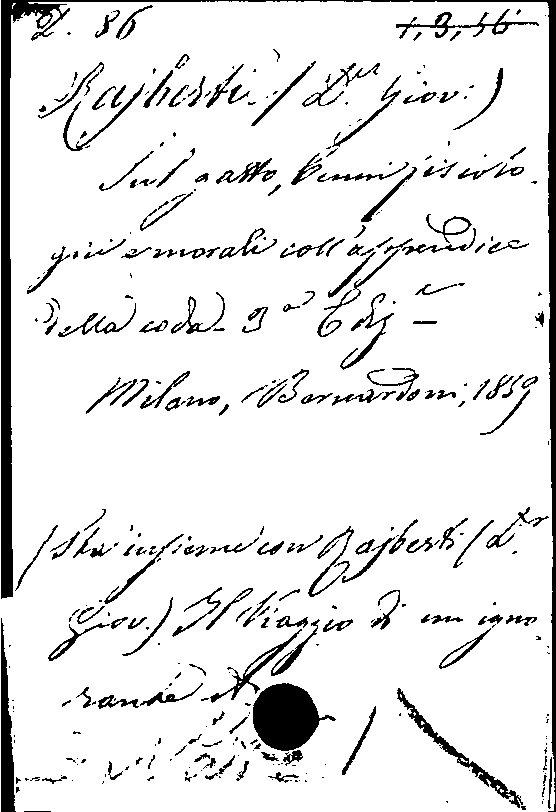 L. 86 1,3,56
Rajberti (D.r Giov.)
Sul gatto, Cenni fisiolo-
gici e morali coll'appendice
della coda. 3a Ediz.e
Milano, Bernardoni, 1859
(Sta insieme con Rajberti (D.r
Giov.) Il Viaggio di un igno-
rante